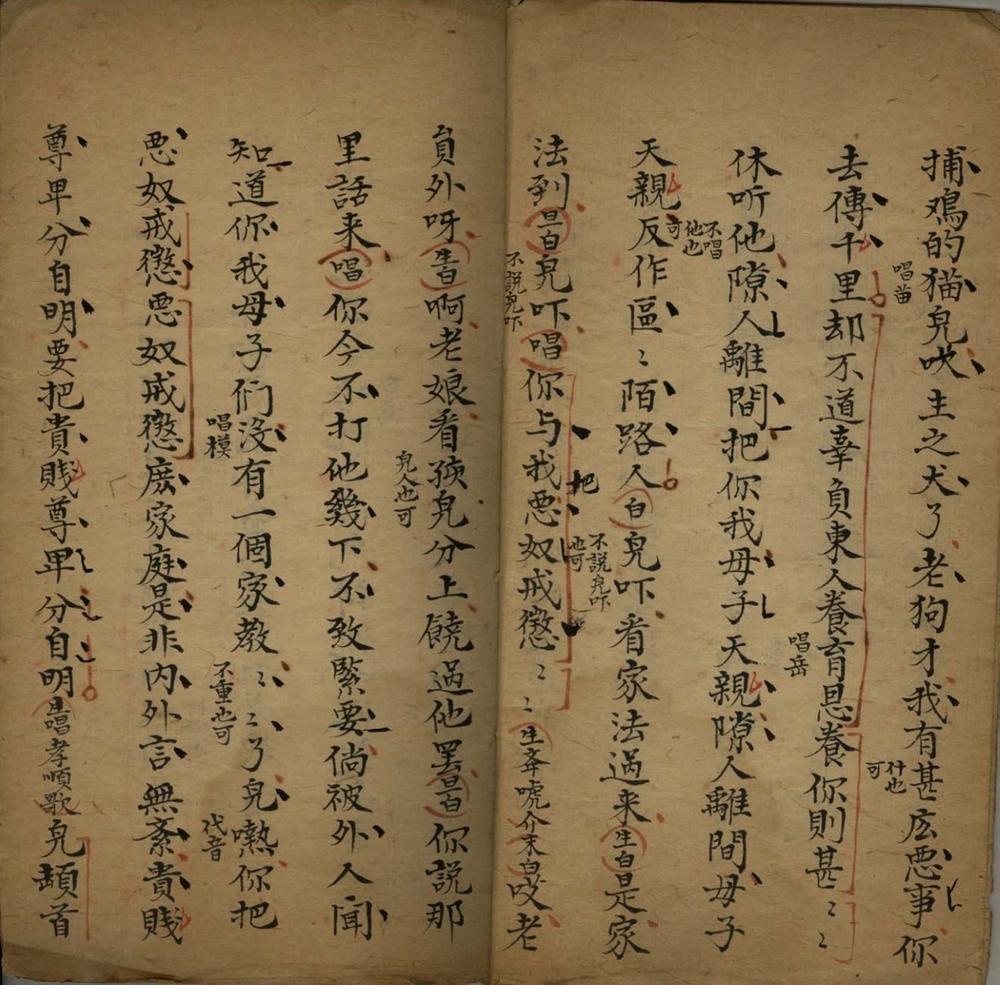 捕鳮的猫皃吠主之犬了老狗才我有甚庅悪事你
唱苗
什也可
去傳千里却不道辜負東人養育恩養你則甚〻〻
唱岳
休听他隙人離間把你我母子天親隙人離間母子
不唱他也可
天親反作區〻陌路人白皃吓看家法過来生白是家
不説皃吓也可
法到旦白皃吓唱你与我悪奴戒懲〻〻生奔唬介末白哎老
不説皃吓
把
員外呀生白啊老娘看孩皃分上饒過他罢旦白你説那
皃人也可
里話来唱你今不打他幾下不致緊要倘被外人聞
知道你我母子們没有一個家教〻〻了皃嘫你把
唱模
不重也可
代音
悪奴戒懲悪奴戒懲庻家庭是非内外言無紊貴賤
尊卑分自明要把貴賤尊卑分自明生唱孝順歌皃頔首